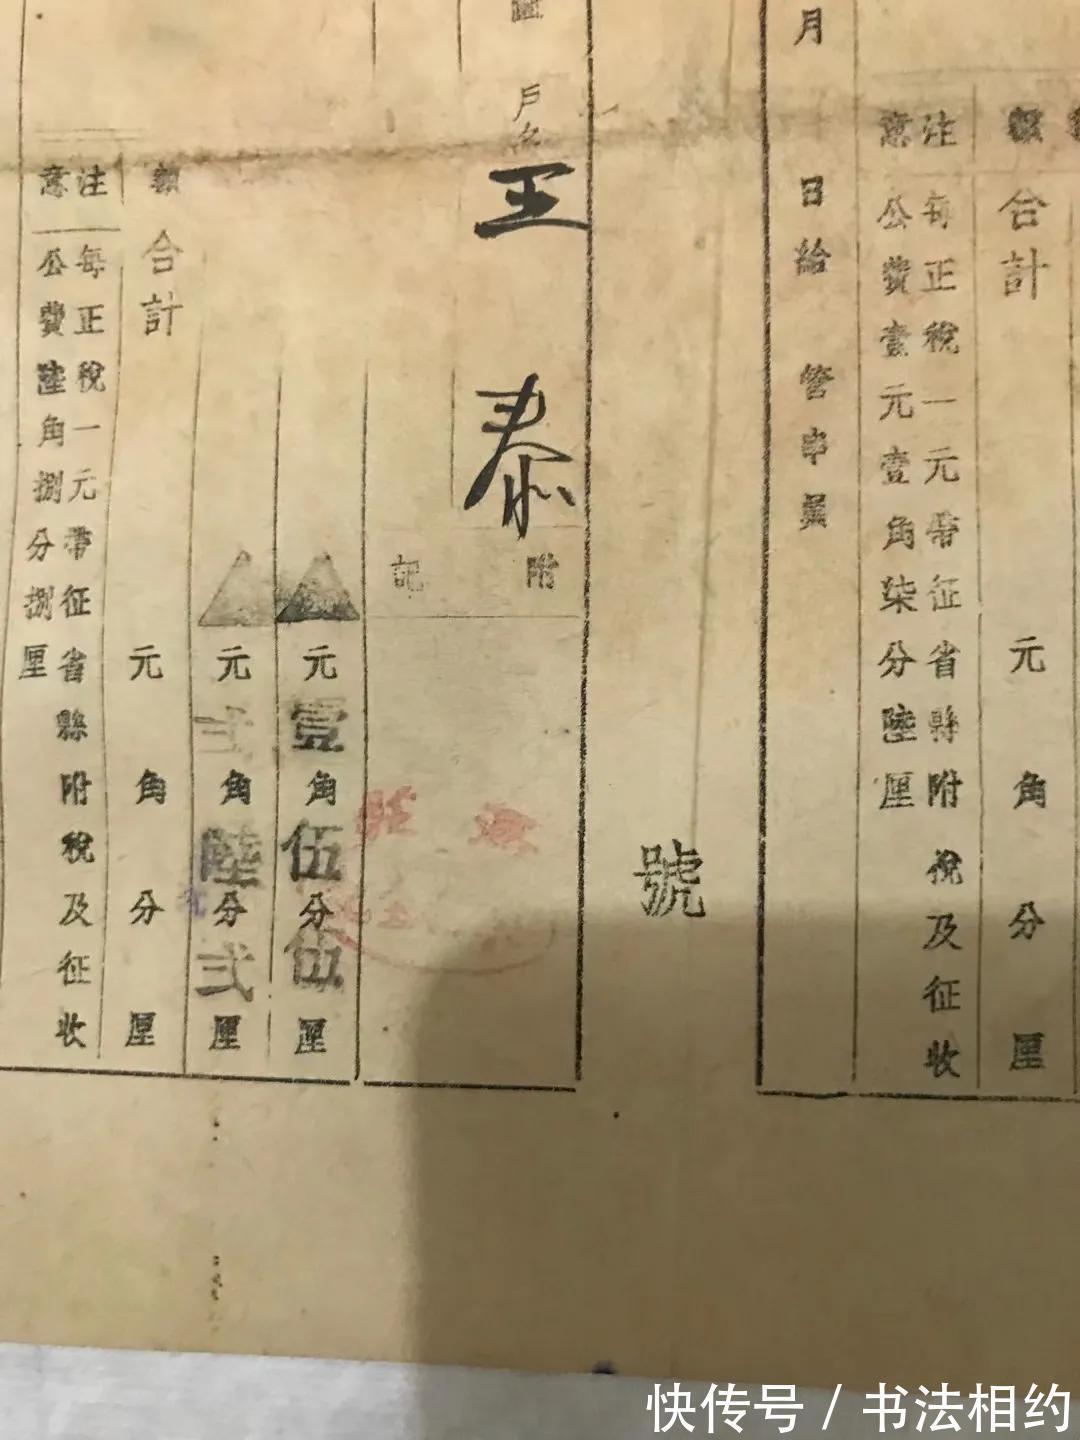 額
合計
元 角 分 厘
注意
每正稅一元帶征省縣附稅及征收
公費壹元壹角柒分陸厘
月
日給
管串員
號
戶名
王泰
附記
元壹角伍分伍厘
元弍角陸分弍厘
額
合計
元角分厘
注意
每正稅一元帶征省縣附稅及征收
公費陸角捌分捌厘
快传号 / 书法相约